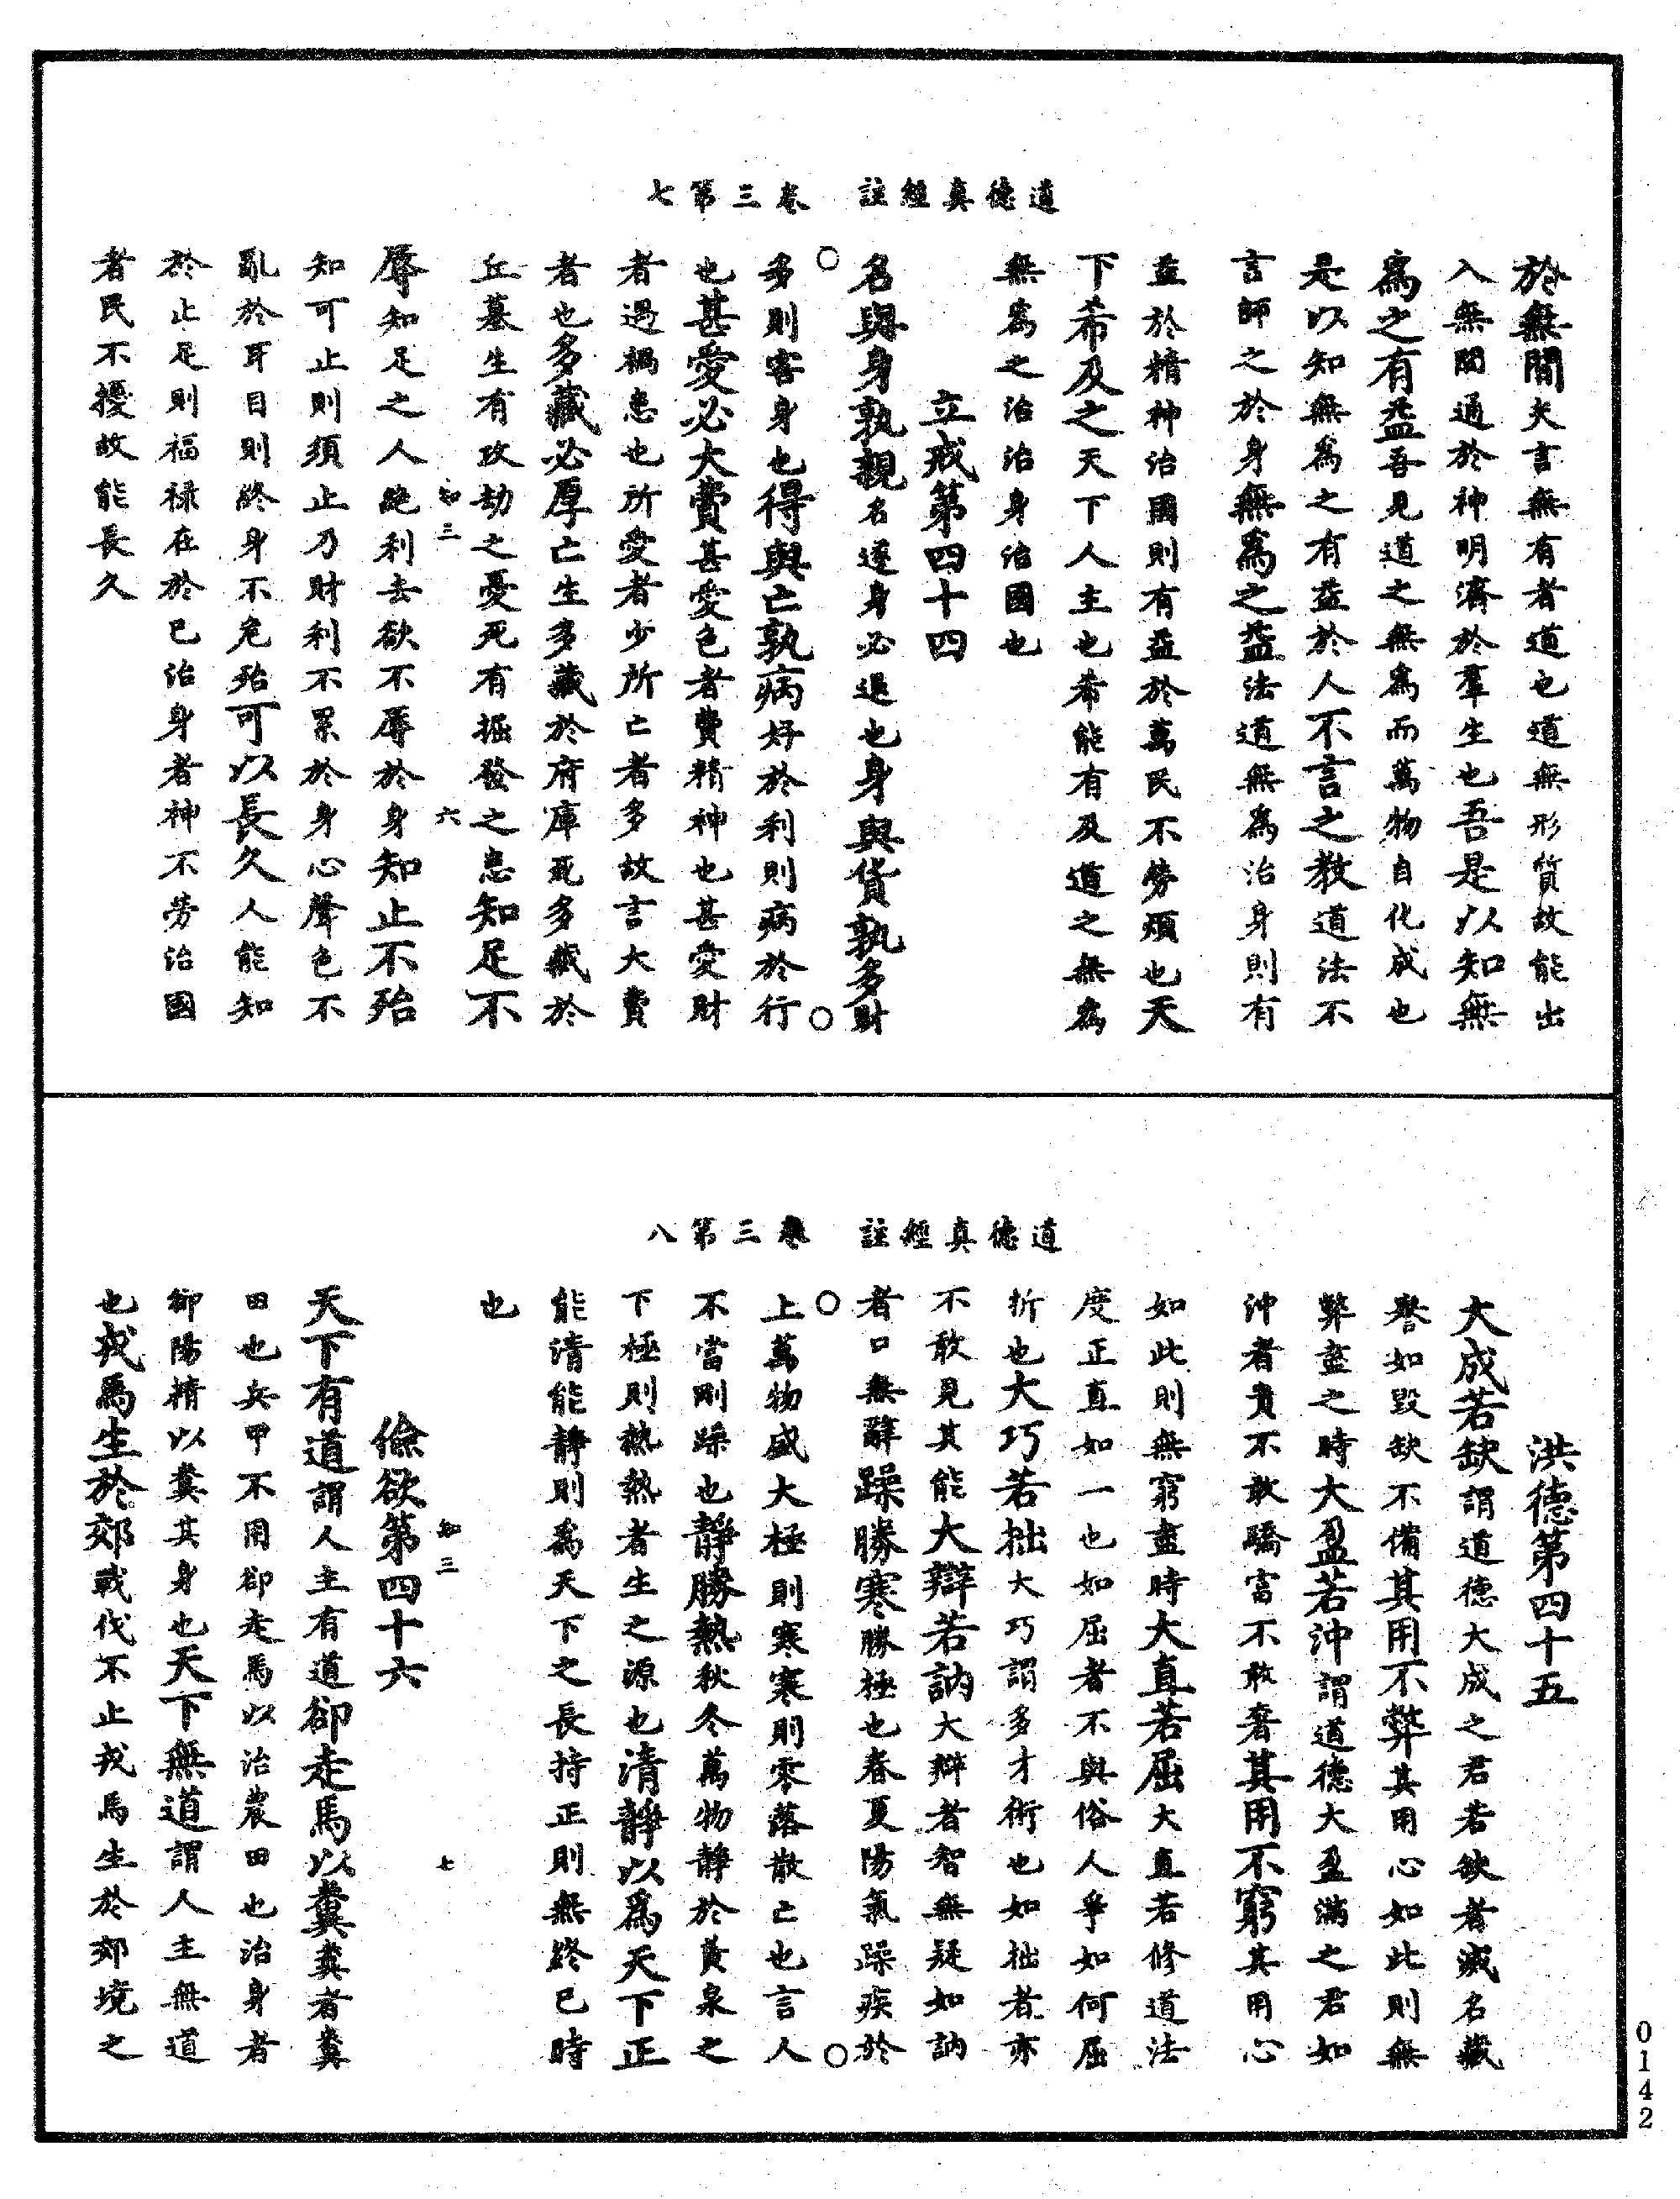 道德真經註　卷三第七
於無間夫言無有者道也道無形質故能出
入無間通於神明濟於羣生也吾是以知無
爲之有益吾見道之無爲而萬物自化成也
是以知無爲之有益於人不言之教道法不
言師之於身無爲之益法道無爲治身則有
益於精神治國則有益於萬民不勞煩也天
下希及之天下人主也希能有及道之無爲
無爲之治治身治國也
立戒第四十四
名與身孰親名遂身必退也身與貨孰多財
多則害身也得與亡孰病好於利則病於行
也甚愛必大費甚愛色者費精神也甚愛財
者遇禍患也所愛者少所亡者多故言大費
者也多藏必厚亡生多藏於府庫死多藏於
丘墓生有攻劫之憂死有掘發之患知足不
知三　六
辱知足之人絶利去欲不辱於身知止不殆
知可止則須止乃財利不累於身心聲色不
亂於耳目則終身不危殆可以長久人能知
於止足則福禄在於己治身者神不勞治國
者民不擾故能長久
道德真經註　卷三第八
洪德第四十五
大成若缺謂道德大成之君若缺者滅名藏
譽如毀缺不備其用不弊其用心如此則無
弊盡之時大盈若沖謂道德大盈滿之君如
沖者貴不敢驕富不敢奢其用不窮其用心
如此則無窮盡時大直若屈大直若修道法
度正直如一也如屈者不與俗人爭如何屈
折也大巧若拙大巧謂多才術也如拙者亦
不敢見其能大辯若訥大辯者智無疑如訥
者口無辭躁勝寒勝極也春夏陽氣躁疾於
上萬物盛大極則寒寒則零落散亡也言人
不當剛躁也靜勝熱秋冬萬物靜於黃泉之
下極則熱熱者生之源也清靜以爲天下正
能清能靜則爲天下之長持正則無終已時
也
知三　七
儉欲第四十六
天下有道謂人主有道卻走馬以糞糞者糞
田也兵甲不用卻走馬以治農田也治身者
卻陽精以糞其身也天下無道謂人主無道
也戎馬生於郊戰伐不止戎馬生於郊境之
0142